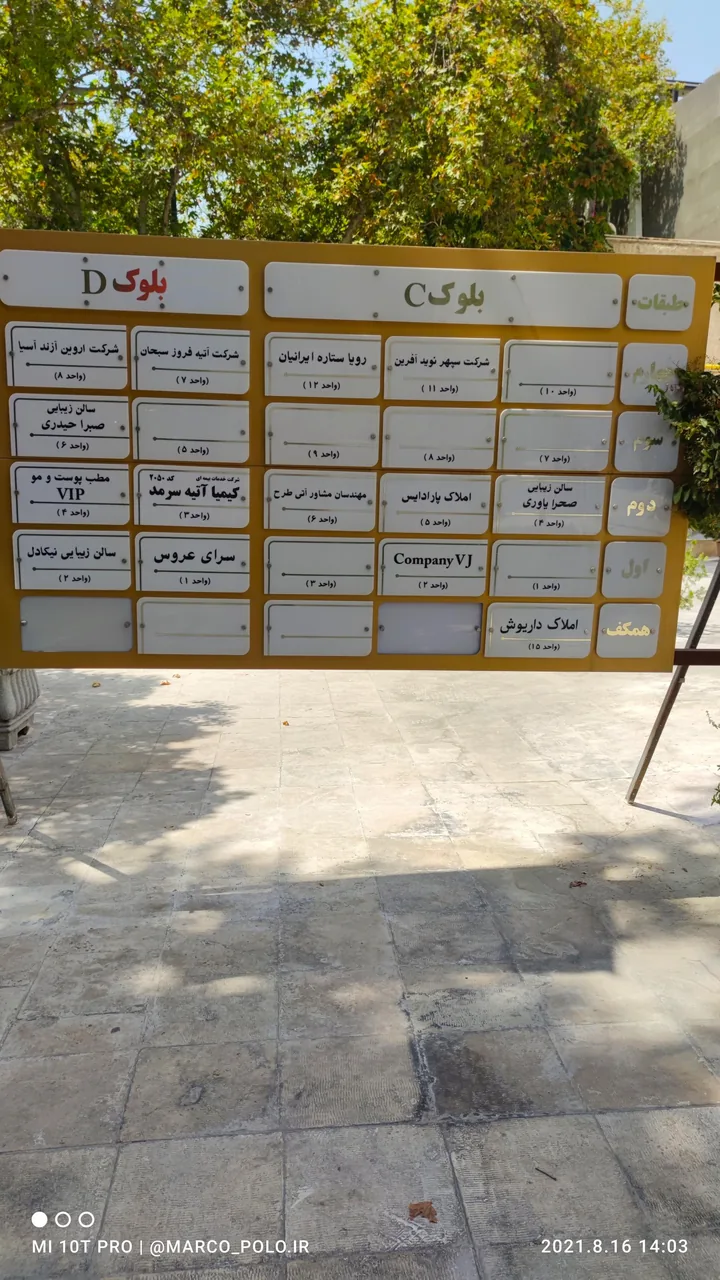 طبقات
بلوک C
بلوک D
چهارم
(واحد ۱۰)
شرکت سپهر نوید آفرین
(واحد ۱۱)
رویا ستاره ایرانیان
(واحد ۱۲)
شرکت آتیه فروز سبحان
(واحد ۷)
شرکت اروین آژند آسیا
(واحد ۸)
سوم
(واحد ۷)
(واحد ۸)
(واحد ۹)
(واحد ۵)
سالن زیبایی
صبرا حیدری
(واحد ۶)
دوم
سالن زیبایی
صحرا یاوری
(واحد ۴)
املاک پارادایس
(واحد ۵)
مهندسان مشاور آتی طرح
(واحد ۶)
شرکت خدمات بیمه ای کد ۲۰۵۰
کیمیا آتیه سرمد
(واحد ۳)
مطب پوست و مو
VIP
(واحد ۴)
اول
(واحد ۱)
Company VJ
(واحد ۲)
(واحد ۳)
سرای عروس
(واحد ۱)
سالن زیبایی نیکادل
(واحد ۲)
همکف
املاک داریوش
(واحد ۱۵)
MI 10T PRO | @MARCO_POLO.IR
2021.8.16 14:03